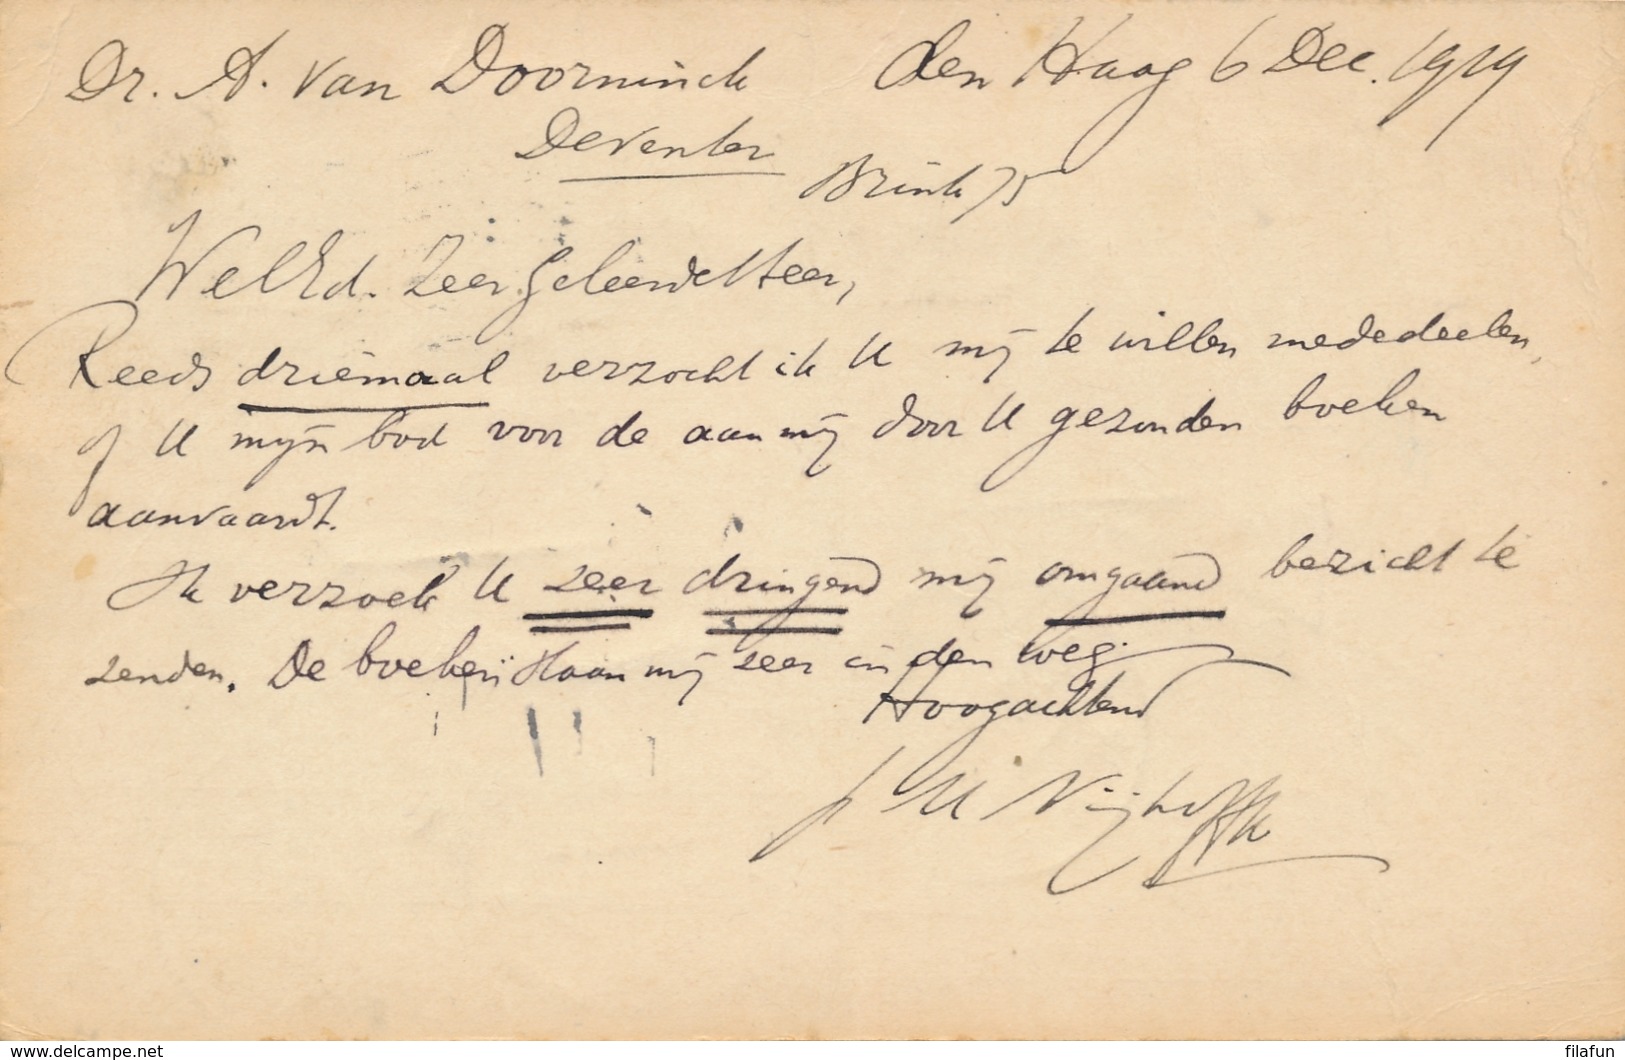 Dr. A. van Doorninck den Haag 6 Dec. 1919
Deventer
Brink 75
WelEd. Zeer Geleerde Heer,
Reeds driemaal verzocht ik U mij te willen mededeelen,
of U mijn bod voor de aan mij door U gezonden boeken
aanvaardt.
Ik verzoek U zeer dringend mij omgaand bericht te
zenden. De boeken staan mij zeer in den weg.
Hoogachtend
Nijhoff
www.delcampe.net
filafun